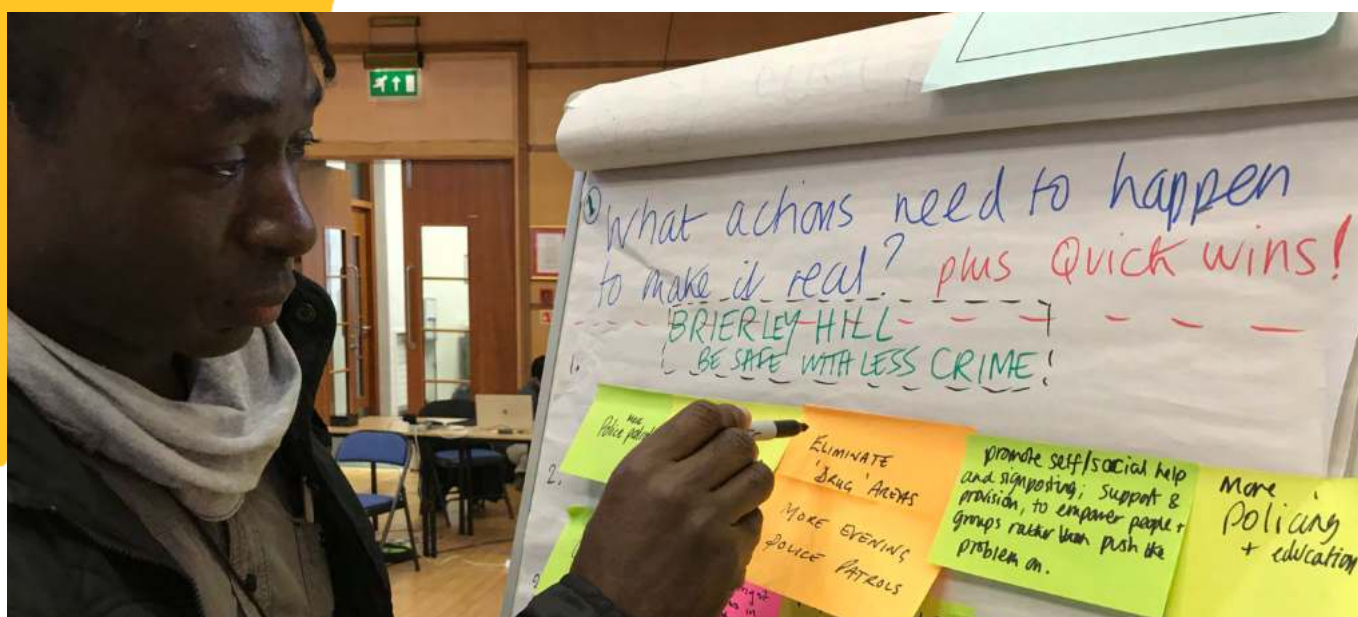 What actions need to happen
to make it real? plus Quick wins!
BRIERLEY HILL
1. BE SAFE WITH LESS CRIME
More
Police
ELIMINATE
'DRUG' AREAS
MORE EVENING
POLICE PATROLS
promote self/social help
and signposting; support &
provision, to empower people +
groups rather than push the
problem on.
More
Policing
+ education
2.